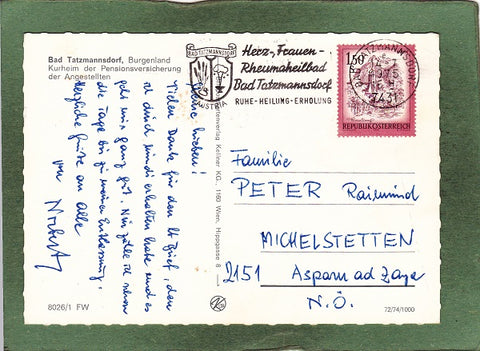 Bad Tatzmannsdorf, Burgenland
Kurheim der Pensionsversicherung
der Angestellten
Meine Lieben!
Vielen Dank für den lb Brief, den
ich erhalten habe und es
geht mir ganz gut. Nun zähle ich schon
die Tage bis zu meiner Entlassung.
Herzliche Grüße an alle
von Norbert
8026/1 FW
Kartenverlag Kellner KG., 1180 Wien, Hippgasse 8
BAD TATZMANNSDORF
AUSTRIA
Herz-, Frauen-
Rheumaheilbad
Bad Tatzmannsdorf
RUHE-HEILUNG-ERHOLUNG
BAD TATZMANNSDORF
7431
1.50
REPUBLIK ÖSTERREICH
Familie
PETER Raimund
MICHELSTETTEN
2151 Asparn ad Zaya
N.Ö.
72/74/1000